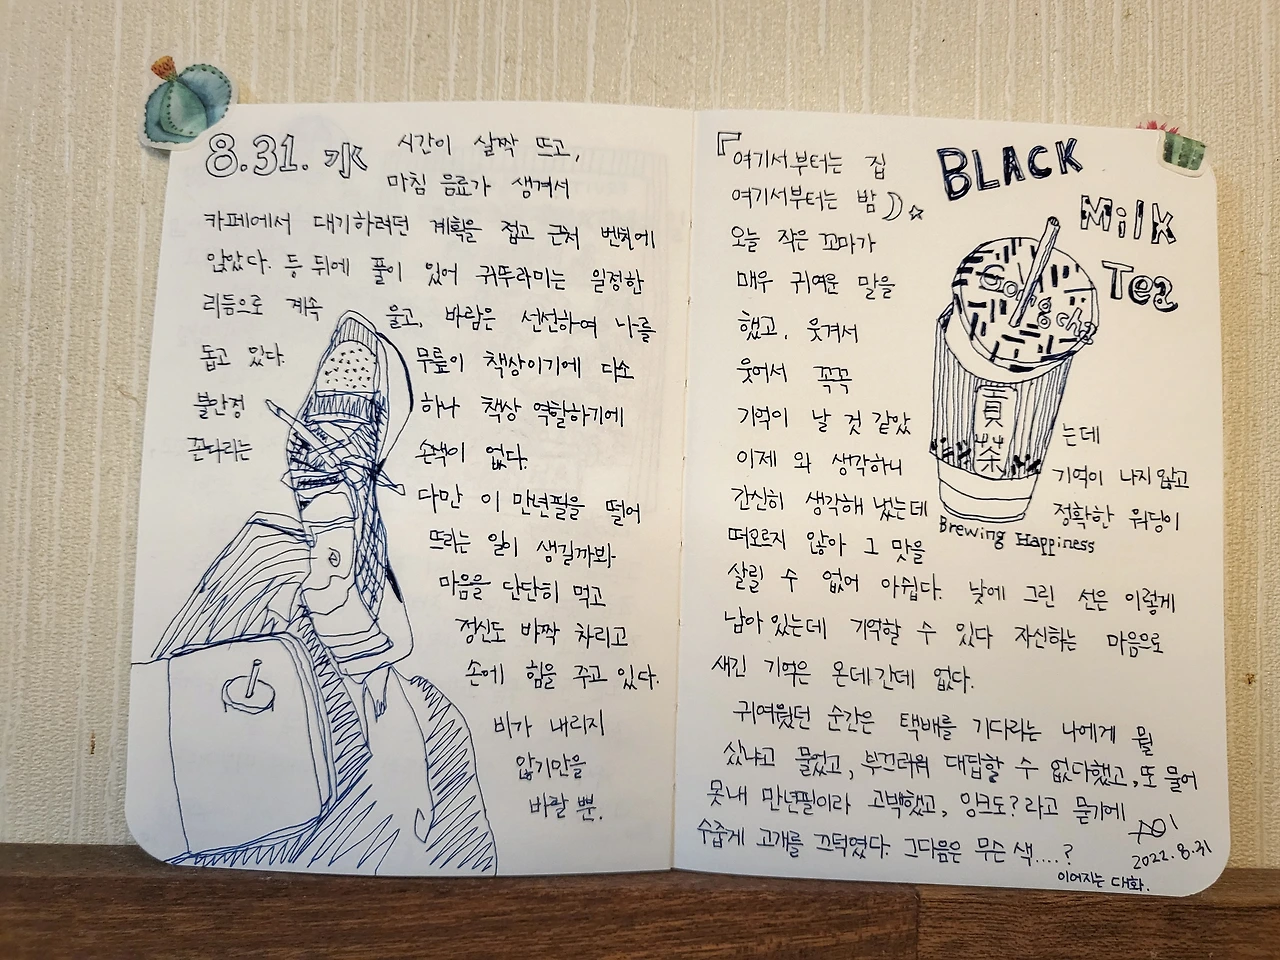 8.31. 水
시간이 살짝 뜨고,
마침 음료가 생겨서
카페에서 대기하려던 계획을 접고 근처 벤치에
앉았다. 등 뒤에 풀이 있어 귀뚜라미는 일정한
리듬으로 계속 울고, 바람은 선선하여 나를
돕고 있다. 무릎이 책상이기에 다소
불안정 하나 책상 역할하기에
끈다리는 손색이 없다.
다만 이 만년필을 떨어
뜨리는 일이 생길까봐
마음을 단단히 먹고
정신도 바짝 차리고
손에 힘을 주고 있다.
비가 내리지
않기만을
바랄 뿐.
『여기서부터는 집
여기서부터는 밤
오늘 작은 꼬마가
매우 귀여운 말을
했고, 웃겨서
웃어서 꼭꼭
기억이 날 것 같았는데
이제 와 생각하니 기억이 나지 않고
간신히 생각해 냈는데 정확한 워딩이
떠오르지 않아 그 맛을
살릴 수 없어 아쉽다. 낮에 그린 선은 이렇게
남아 있는데 기억할 수 있다 자신하는 마음으로
새긴 기억은 온데간데 없다.
귀여웠던 순간은 택배를 기다리는 나에게 뭘
샀냐고 물었고, 부끄러워 대답할 수 없다했고, 또 물어
못내 만년필이라 고백했고, 잉크도? 라고 묻기에
수줍게 고개를 끄덕였다. 그다음은 무슨 색....?
이어지는 대화.
2022.8.31
BLACK
Milk
Tea
Gong cha
貢茶
Brewing Happiness